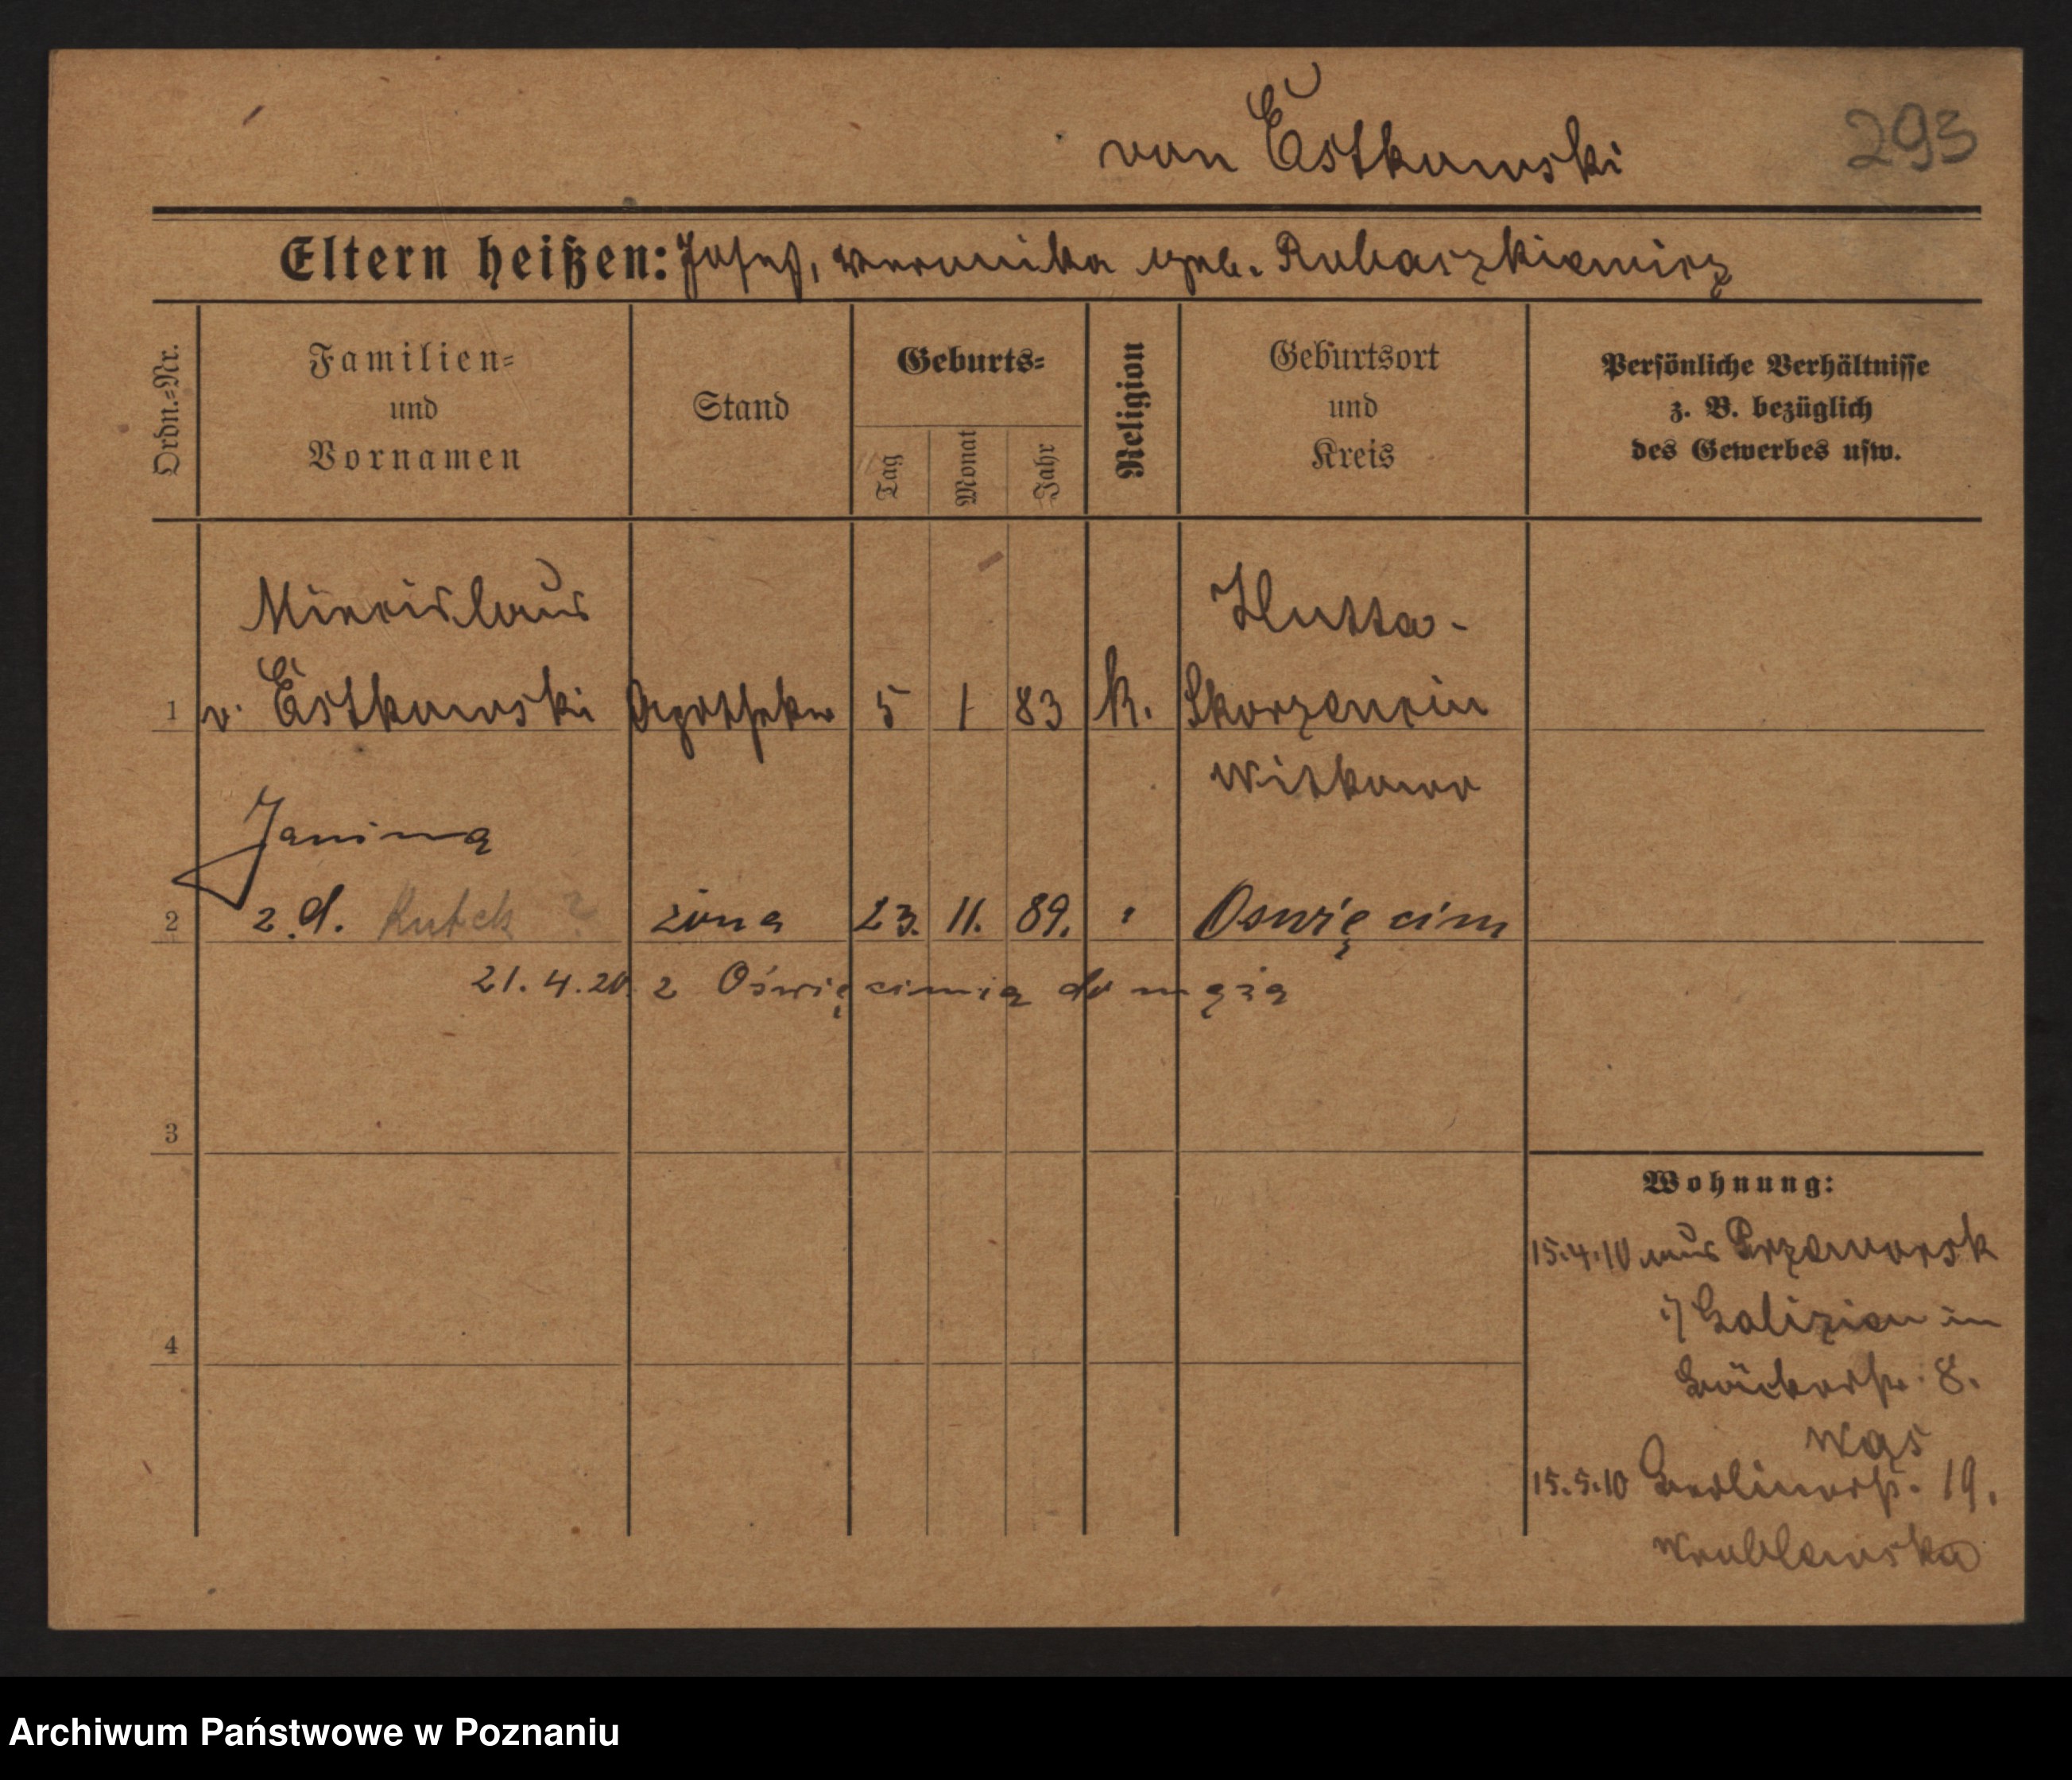 von Estkowski
293
Eltern heißen: Josef, Veronika geb. Rubaszkiewicz
Ordn.=Nr.
Familien=
und
Vornamen
Stand
Geburts=
Tag
Monat
Jahr
Religion
Geburtsort
und
Kreis
Persönliche Verhältnisse
z. B. bezüglich
des Gewerbes usw.
Miecislaus
Hutta-
1 v. Estkowski Apotheker 5 1 83 k. Skorzencin
Witkowo
Janina
2 z d. Rutek ? żona 23. 11. 89. " Oświęcim
21.4.20. z Oświęcimia do męża
3
4
Wohnung:
15.4.10 aus Przeworsk
i/ Galizien in
Bäckerstr. 8.
15.5.10 Berlinerstr. 19.
Wroblewska
Archiwum Państwowe w Poznaniu